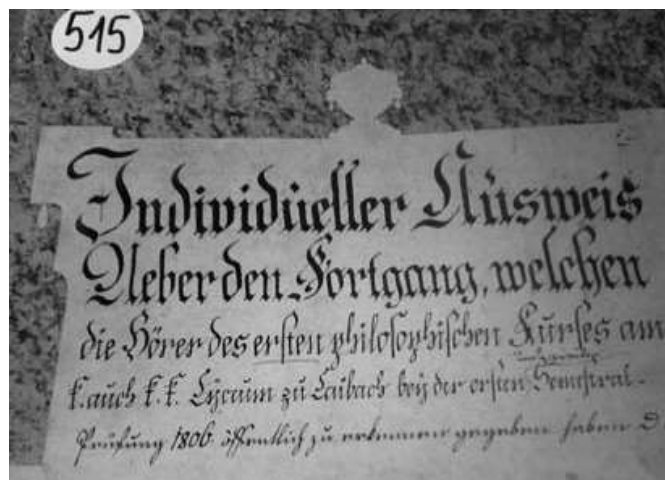 515
Individueller Ausweis
Ueber den Fortgang, welchen
die Hörer des ersten philosophischen Kurses am
k. auch k. k. Lyceum zu Laibach bey der ersten Semestral-
Prüfung 1806 öffentlich zu erkennen gegeben haben